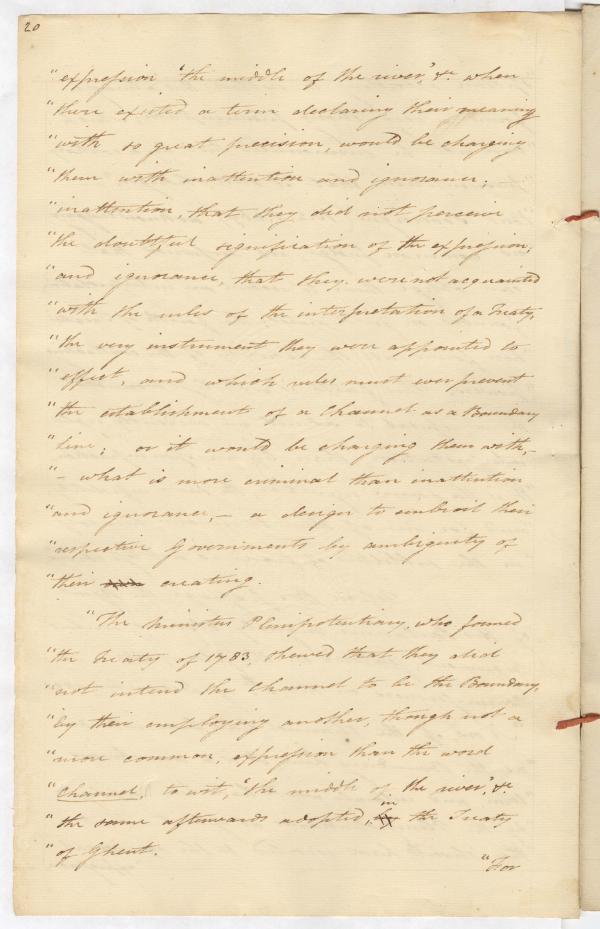 20
"expression "the middle of the river", &c when
"there existed a term declaring their meaning
"with so great precision, would be charging
"them with inattention and ignorance;
"inattention, that they did not perceive
"the doubtful signification of the expression;
"and ignorance, that they were not acquainted
"with the rules of the interpretation of a Treaty,
"the very instrument they were appointed to
"effect, and which rules must ever prevent
"the establishment of a Channel as a Boundary
"line; or it would be charging them with,–
"– what is more criminal than inattention
"and ignorance,– a design to embroil their
"respective Governments by ambiguity of
"their creating.
"The Ministers Plenipotentiary, who formed
"the Treaty of 1783, shewed that they did
"not intend the Channel to be the Boundary,
"by their employing another, though not a
"more common, expression than the word
"Channel, to wit, "the middle of the river", &c
"the same afterwards adopted, in the Treaty
"of Ghent.
"For